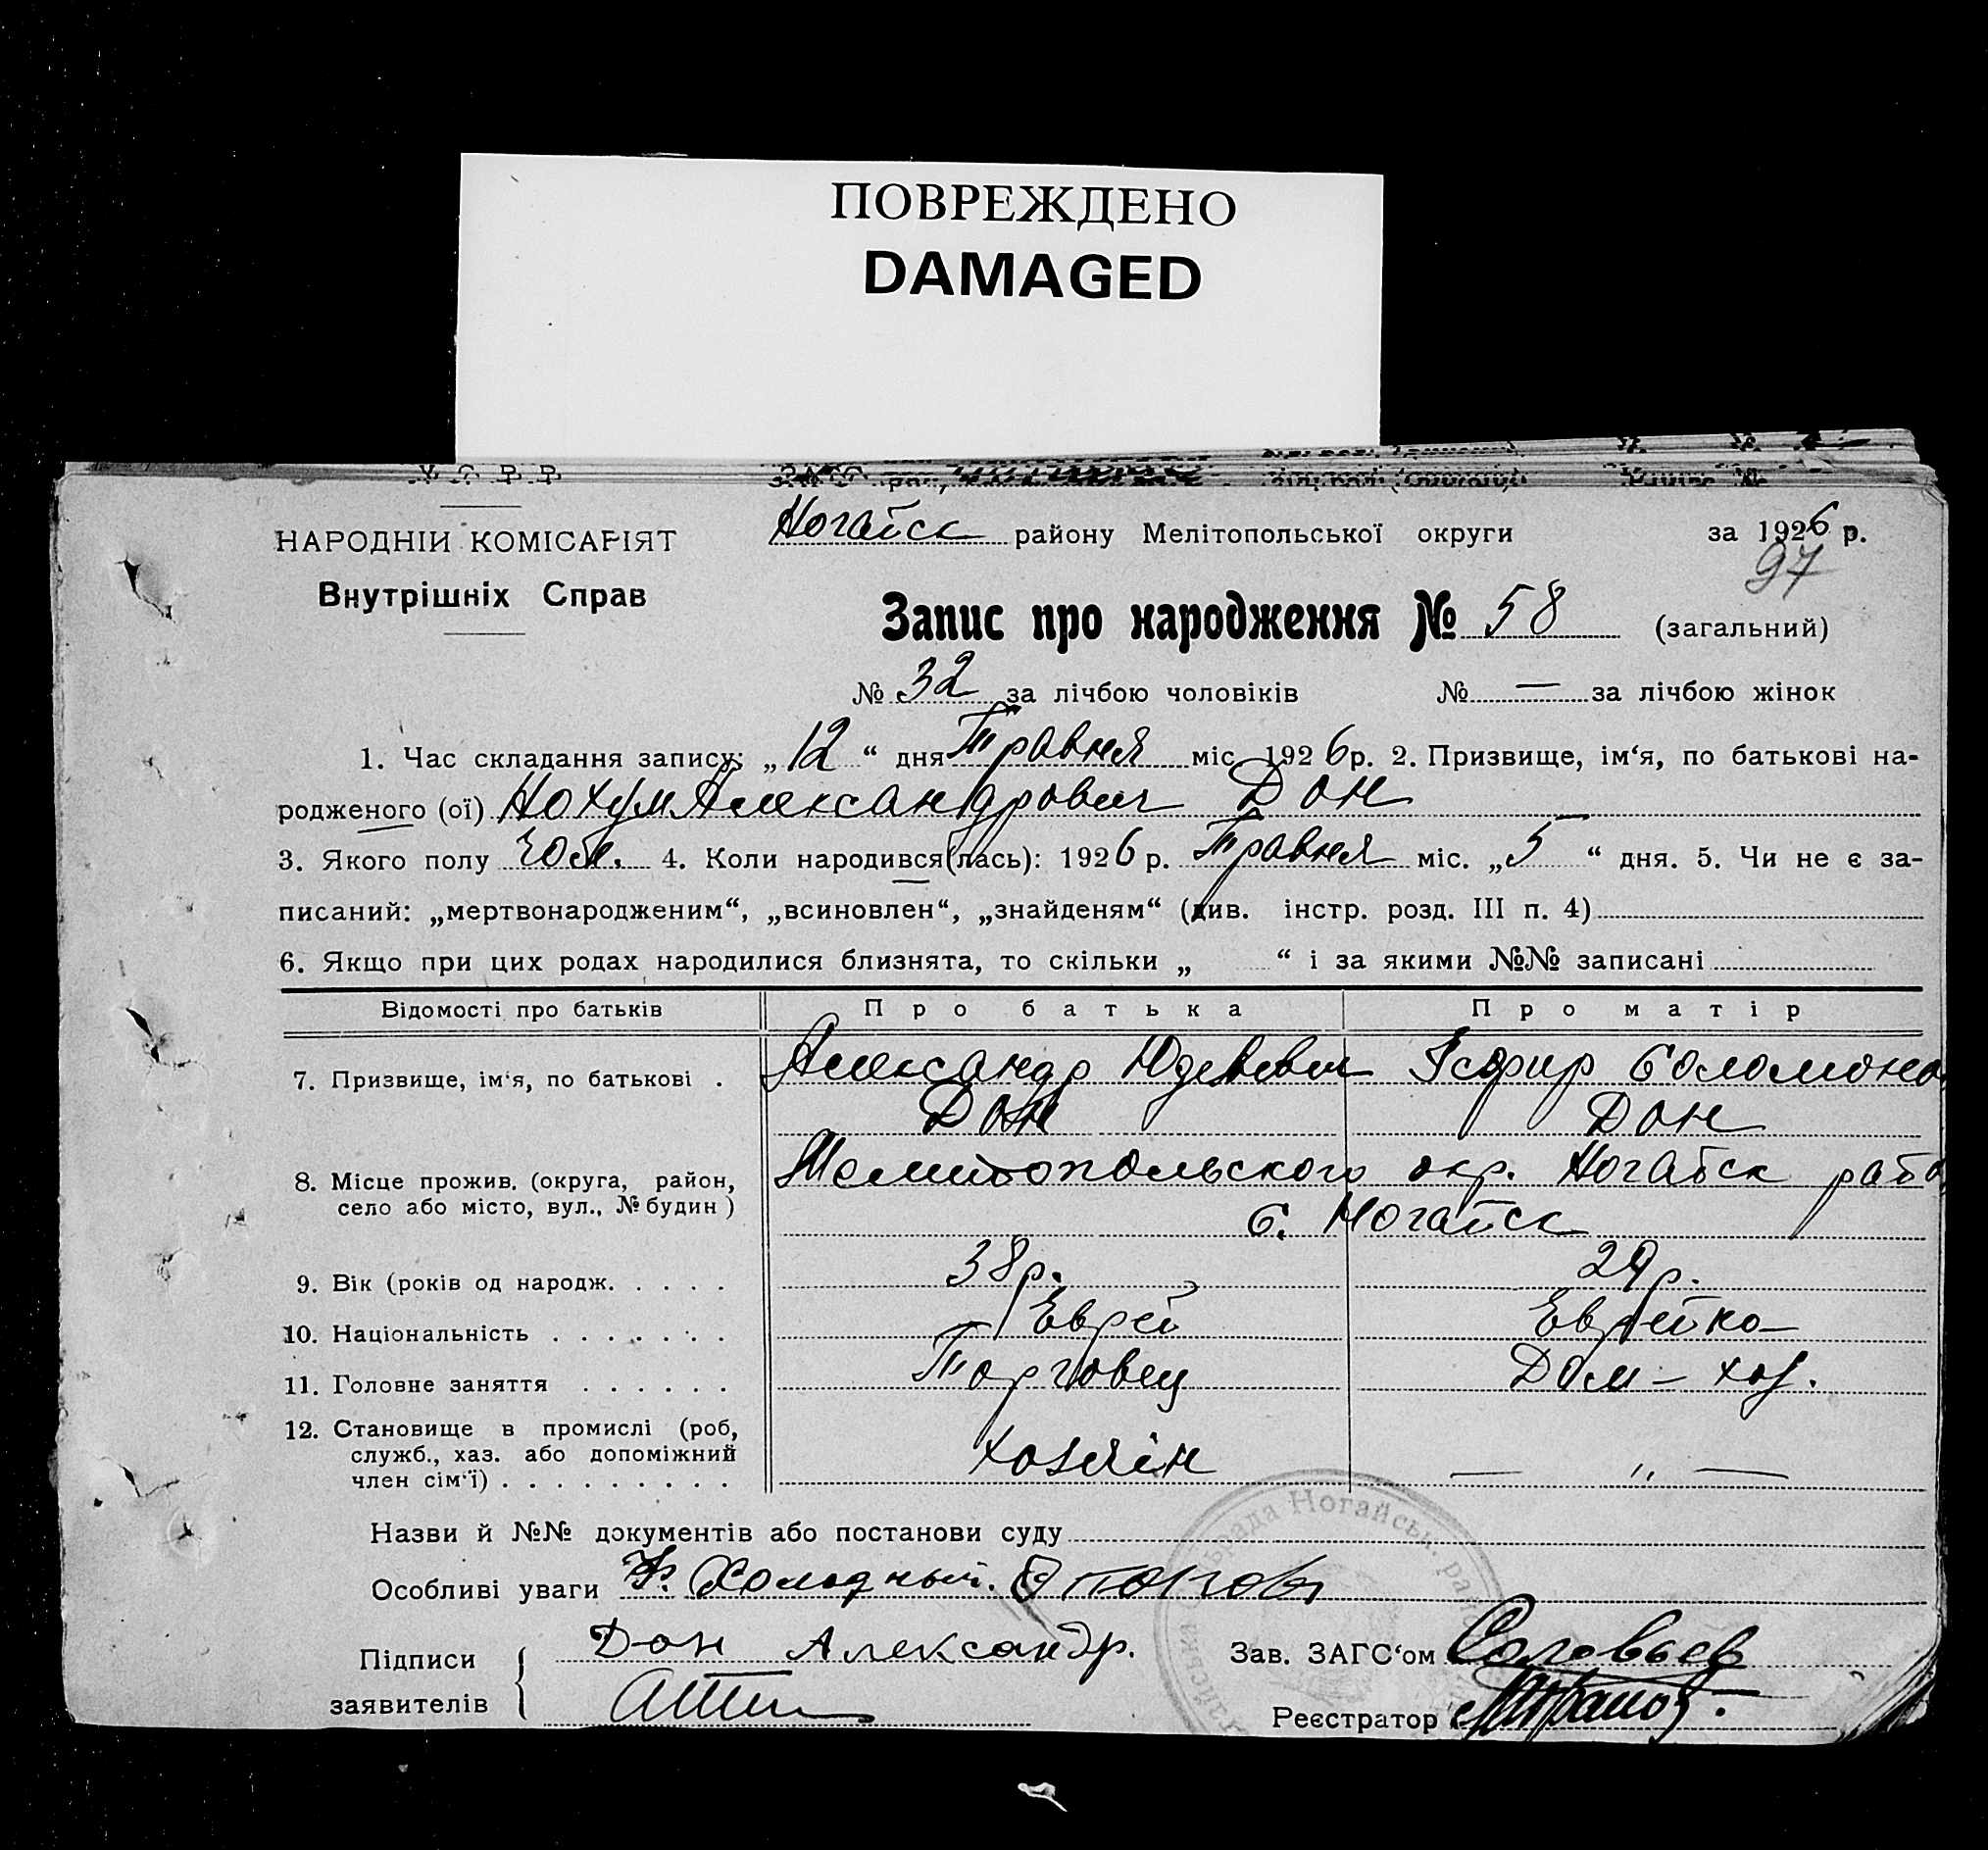 ПОВРЕЖДЕНО
DAMAGED
Ногайск району Мелітопольської округи за 1926 р.
НАРОДНІЙ КОМІСАРІЯТ
97
Внутрішніх Справ
Запис про народження № 58 (загальний)
№ 32 за лічбою чоловіків № — за лічбою жінок
1. Час складання запису: „12“ дня Травня міс. 1926 р. 2. Призвище, ім‘я, по батькові на-
родженого (ої) Нохум Александрович Дон
3. Якого полу чол. 4. Коли народився(лась): 1926 р. Травня міс. „5“ дня. 5. Чи не є за-
писаний: „мертвонародженим“, „всиновлен“, „знайденям“ (див. інстр. розд. III п. 4)
6. Якщо при цих родах народилися близнята, то скільки „ “ і за якими №№ записані
Відомості про батьків Про батька Про матір
7. Призвище, ім‘я, по батькові . Александр Юделевич Эсфир Соломоно
Дон Дон
8. Місце прожив. (округа, район, Мелитопольского окр. Ногайск райо
село або місто, вул., № будин) с. Ногайск
9. Вік (років од народж. . . . . 38 р. 29 р.
10. Національність . . . . . . . Еврей Еврейка
11. Головне заняття . . . . . . Торговец Дом – хоз.
12. Становище в промислі (роб,
служб., хаз. або допоміжний Хозяін — „ —
член сім‘ї) . . . . . . . . .
Назви й №№ документів або постанови суду
Особливі уваги Холодный.
Підписи Дон Александр. Зав. ЗАГС‘ом Соловьев
заявителів Реєстратор
рада Ногайськ. рай